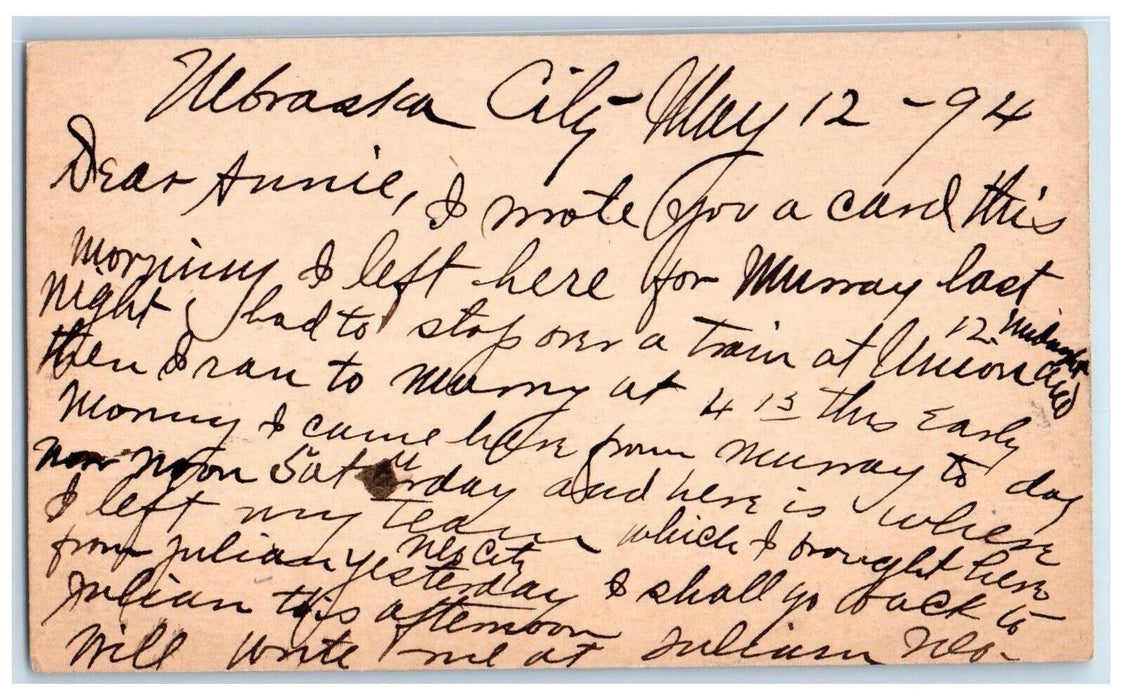 Nebraska City May 12 - 94
Dear Annie, I wrote you a card this
Morning I left here for Murray last
Night I had to stop over a train at Union 12 Midnight and
then I ran to Murray at 4 15 this Early
Morning I came here from Murray to day
now noon Saturday and here is where
I left my team which I brought here
from Julian yesterday Neb City I shall go back to
Julian this afternoon
Will write me at Julian Neb-